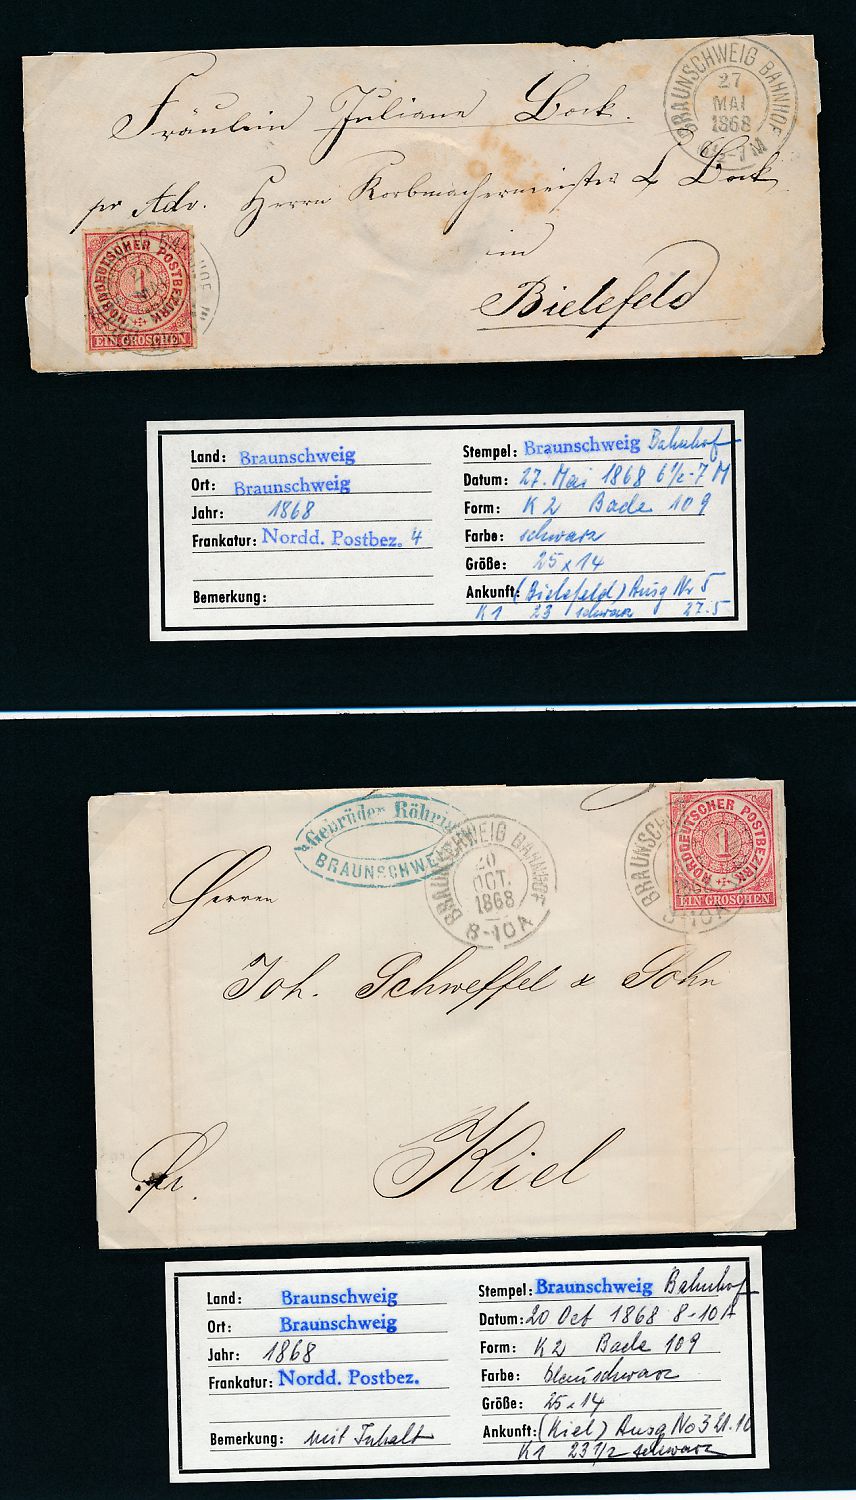 Fräulein Juliane Bock.
pr Adr. Herrn Korbmachermeister L Bock
in
Bielefeld
BRAUNSCHWEIG BAHNHOF
27
MAI
1868
6½-7 M
NORDDEUTSCHER POSTBEZIRK
1
EIN GROSCHEN
Land: Braunschweig
Ort: Braunschweig
Jahr: 1868
Frankatur: Nordd. Postbez. 4
Bemerkung:
Stempel: Braunschweig Bahnhof
Datum: 27. Mai 1868 6½-7 M
Form: K2 Bade 109
Farbe: schwarz
Größe: 25 x 14
Ankunft: (Bielefeld) Ausg Nr 5
K1 23 schwarz 27.5
Gebrüder Röhrig
BRAUNSCHWEIG
BRAUNSCHWEIG BAHNHOF
20
OCT.
1868
8-10 A
NORDDEUTSCHER POSTBEZIRK
1
EIN GROSCHEN
BRAUNSCH
1868
8-10 A
Herren
Joh. Schweffel & Sohn
fr.
Kiel
Land: Braunschweig
Ort: Braunschweig
Jahr: 1868
Frankatur: Nordd. Postbez.
Bemerkung: mit Inhalt
Stempel: Braunschweig Bahnhof
Datum: 20 Oct 1868 8-10 A
Form: K2 Bade 109
Farbe: blauschwarz
Größe: 25 x 14
Ankunft: (Kiel) Ausg No 3 21.10
K1 23 1/2 schwarz